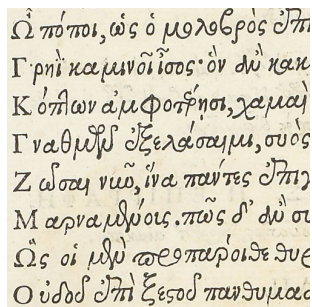 Ὢ πόποι, ὡς ὁ μολοβρὸς ἐπι
Γρηῒ καμινοῖ ἶσος· ὃν ἂν κακ
Κόπτων ἀμφοτέρησι, χαμαὶ
Γναθμῶν ἐξελάσαιμι, συὸς
Ζῶσαι νῦν, ἵνα πάντες ἐπιγ
Μαρναμένοις. πῶς δ' ἂν σὺ
Ὣς οἱ μὲν προπάροιθε θυρ
Οὐδοῦ ἐπὶ ξεστοῦ πανθυμαδ